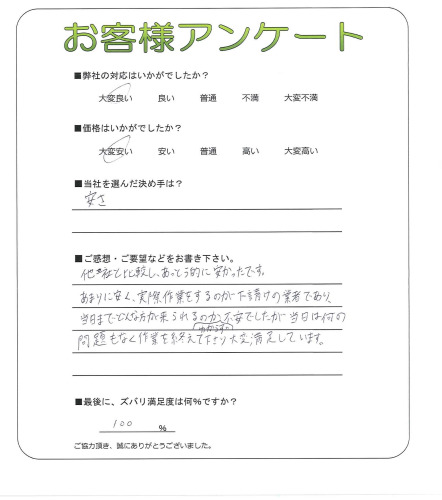 お客様アンケート
■弊社の対応はいかがでしたか？
大変良い 良い 普通 不満 大変不満
■価格はいかがでしたか？
大変安い 安い 普通 高い 大変高い
■当社を選んだ決め手は？
安さ
■ご感想・ご要望などをお書き下さい。
他社と比較し、あっとう的に安かったです。
あまりに安く、実際作業をするのが下請けの業者であり、
当日までどんな方が来られるのか わからず。 不安でしたが当日は何の
問題もなく作業を終えて下さり大変満足しています。
■最後に、ズバリ満足度は何％ですか？
100 ％
ご協力頂き、誠にありがとうございました。